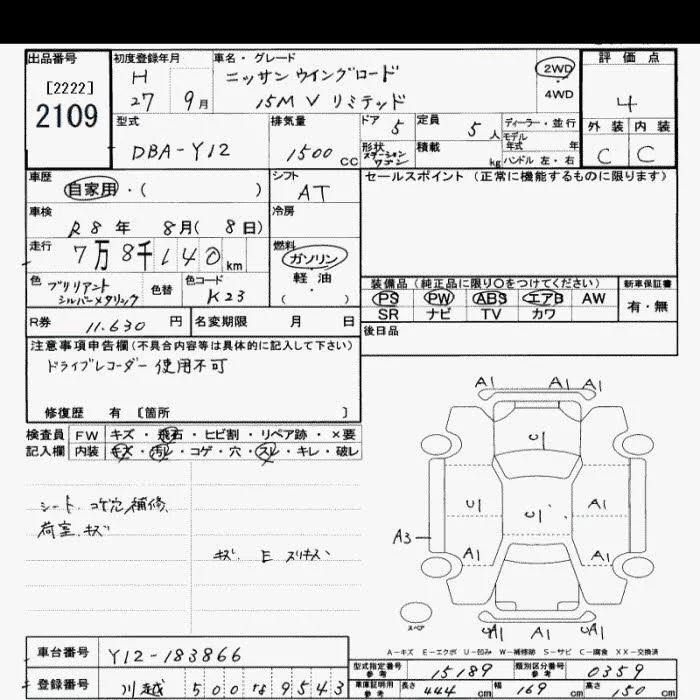 出品番号
[2222]
2109
初度登録年月
H
27 9月
車名・グレード
ニッサン ウイングロード
15M V リミテッド
2WD
・
4WD
評価点
4
外装 内装
C C
型式
DBA-Y12
排気量
1500 CC
ドア 5
形状
ステーションワゴン
定員 5人
積載 kg
ディーラー・並行
モデル
年式 年
ハンドル 左・右
車歴
自家用・( )
シフト
AT
セールスポイント(正常に機能するものに限ります)
車検
R8年 8月(8日)
冷房
走行
7万8千140km
燃料
ガソリン
軽・油
( )
色 ブリリアント
シルバーメタリック
色替
色コード
K23
装備品(純正品に限り○をつけてください)
PS PW ABS エアB AW
SR ナビ TV カワ
新車保証書
有・無
R券 11.630 円
名変期限 月 日
後日品
注意事項申告欄(不具合内容等は具体的に記入して下さい)
ドライブレコーダー 使用不可
修復歴 有 [箇所 ]
検査員
記入欄
FW キズ・飛石・ヒビ割・リペア跡・×要
内装 キズ・汚レ・コゲ・穴・スレ・キレ・破レ
シート.コゲ穴補修
荷室.キズ
キズ. E スリキズ
A1 A1 A1
U1
U1 U1 A1
A3
A1 A1
スペア
A1 A1 A1
A-キズ E-エクボ U-凹み W-補修跡 S-サビ C-腐食 XX-交換済
車台番号 Y12-183866
型式指定番号
参考
15189
類別区分番号
参考
0359
登録番号 川越 500 9543
車庫証明用
参考
長さ 444 cm 幅 169 cm 高さ 150 cm